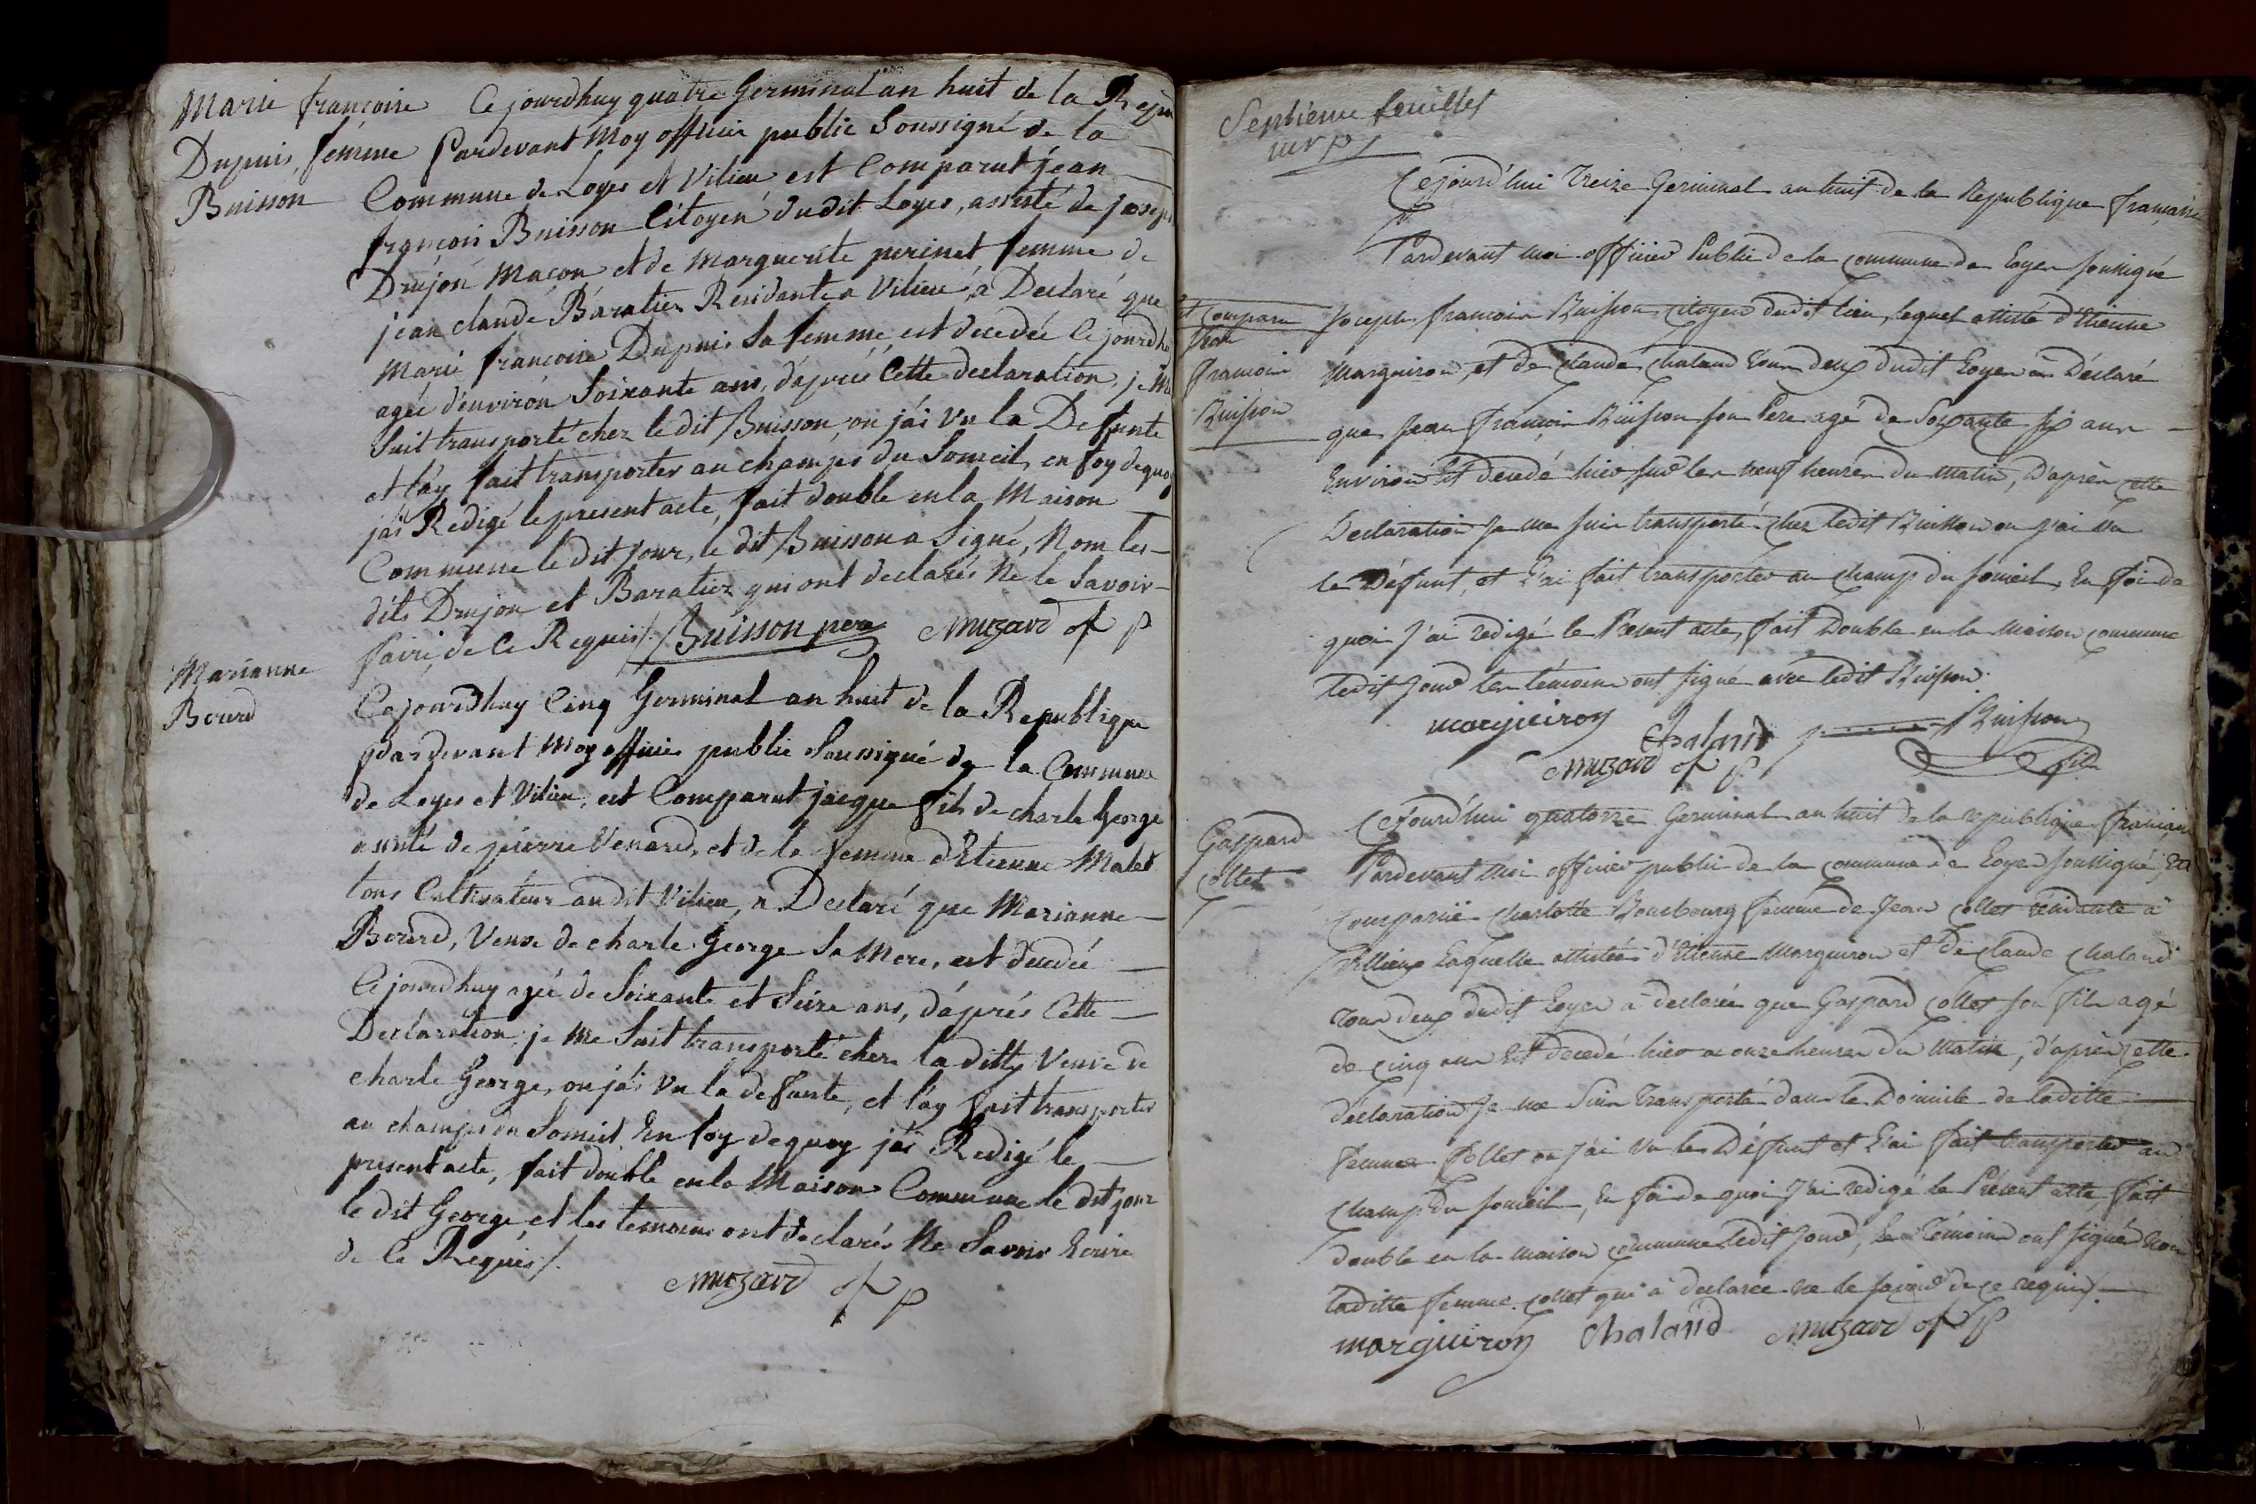 Marie françoise
Dupuis, femme
Buisson
Ce jourdhuy quatre Germinal an huit de la Repu
Pardevant Moy officier public Soussigné de la
Commune de Loyes et Vilieu est Comparut jean
françois Buisson Citoyen dudit Loyes, assisté de joseph
Drujon Maçon et de Marguerite perinet femme de
jean claude Baratier Residante a Vilieu, a Declaré que
Marie françoise Dupuis Sa femme est decedée Ce jourdhu
agée d'environ Soixante ans, d'après Cette declaration, je Me
Suit transporté chez le dit Buisson, ou j'ai Vu la Defunte
et l'ay fait transporter au champs du Someil, en foy dequoy
jai Redigé le present acte, fait double en la Maison
Commune le dit Jour, le dit Buisson a Signé, Nom les
dits Drujon et Baratier qui ont declarés Ne le Savoir
faire, de Ce Requis /. Buisson pere Muzard of p
Marianne
Bererd
Ce jourdhuy Cinq Germinal an huit de la Republique
pardevant Moy officier public Soussigné de la Commune
de Loyes et Vilieu, est Comparut jacque fils de charle George
assisté de pierre Venard, et de la femme d'Etienne Malet
tous Cultivateur audit Vilieu, a Declaré que Marianne
Bererd, Veuve de charle George Sa Mere, est decedée
Ce jourdhuy agée de Soixante et Seize ans, d'après Cette
Declaration, je Me Suit transporté chez la ditte Veuve de
charle George, ou j'ai Vu la defunte, et l'ay fait transporter
au champs du Someil En foy dequoy j'ai Redigé le
present acte, fait double en la Maison Commune le dit jour
le dit George et les temoins ont declarés Ne Savoir Ecrire
de Ce Requis /.
Muzard of p
Septieme feuillet
Cejourd'hui Treize Germinal an huit de la Republique française
Pardevant moi officier Public de la commune de Loyes soussigné
est comparu
Jean
François
Buisson
Joseph francois Buisson citoyen dudit lieu, lequel assisté d'Etienne
Marguiron, et de Claude Chaland tous deux dudit Loyes à Déclaré
que Jean François Buisson son Pere agé de Soixante six ans
Environ Est decedé hier sur les neuf heures du matin, D'après cette
Declaration Je me suis transporté chez ledit Buisson ou j'ai vu
le Défunt, et l'ai fait transporter au champ du someil, En foi de
quoi J'ai redigé le Présent acte, fait Double en la Maison commune
ledit Jour les témoins ont signé avec ledit Buisson.
marguiron Chaland Buisson
Muzard of p fils
Gaspard
collet
Cejourd'hui quatorze Germinal an huit de la republique française
Pardevant Moi officier public de la commune de Loyes soussigné Est
Comparue Charlotte Bourbourg femme de Jean Collet résidante à
Villieux Laquelle assistée d'Etienne Marguiron et de Claude Chaland
tous deux dudit Loyes à declarée que Gaspard Collet son fils agé
de cinq ans Est decedé hier a onze heures du Matin, d'après cette
déclaration Je me Suis Transporté dans le Domicile de laditte
femme Collet ou j'ai vu le Défunt et l'ai fait transporter au
Champ du someil, En foi de quoi J'ai redigé le Présent acte, fait
double en la maison commune ledit Jour, Les Témoins ont signé Non
laditte femme collet qui à declarée ne le savoir de ce requis /.
marguiron Chaland Muzard of p